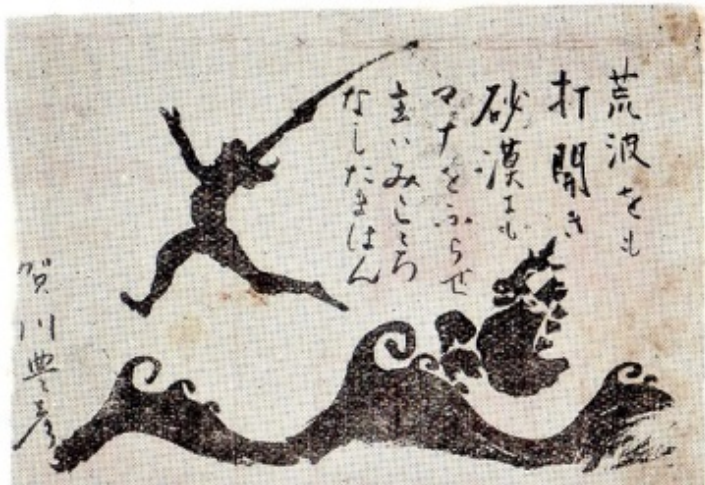 荒波をも
打開き
砂漠にも
マナをふらせ
主いみこころ
なしたまはん
賀川豊彦